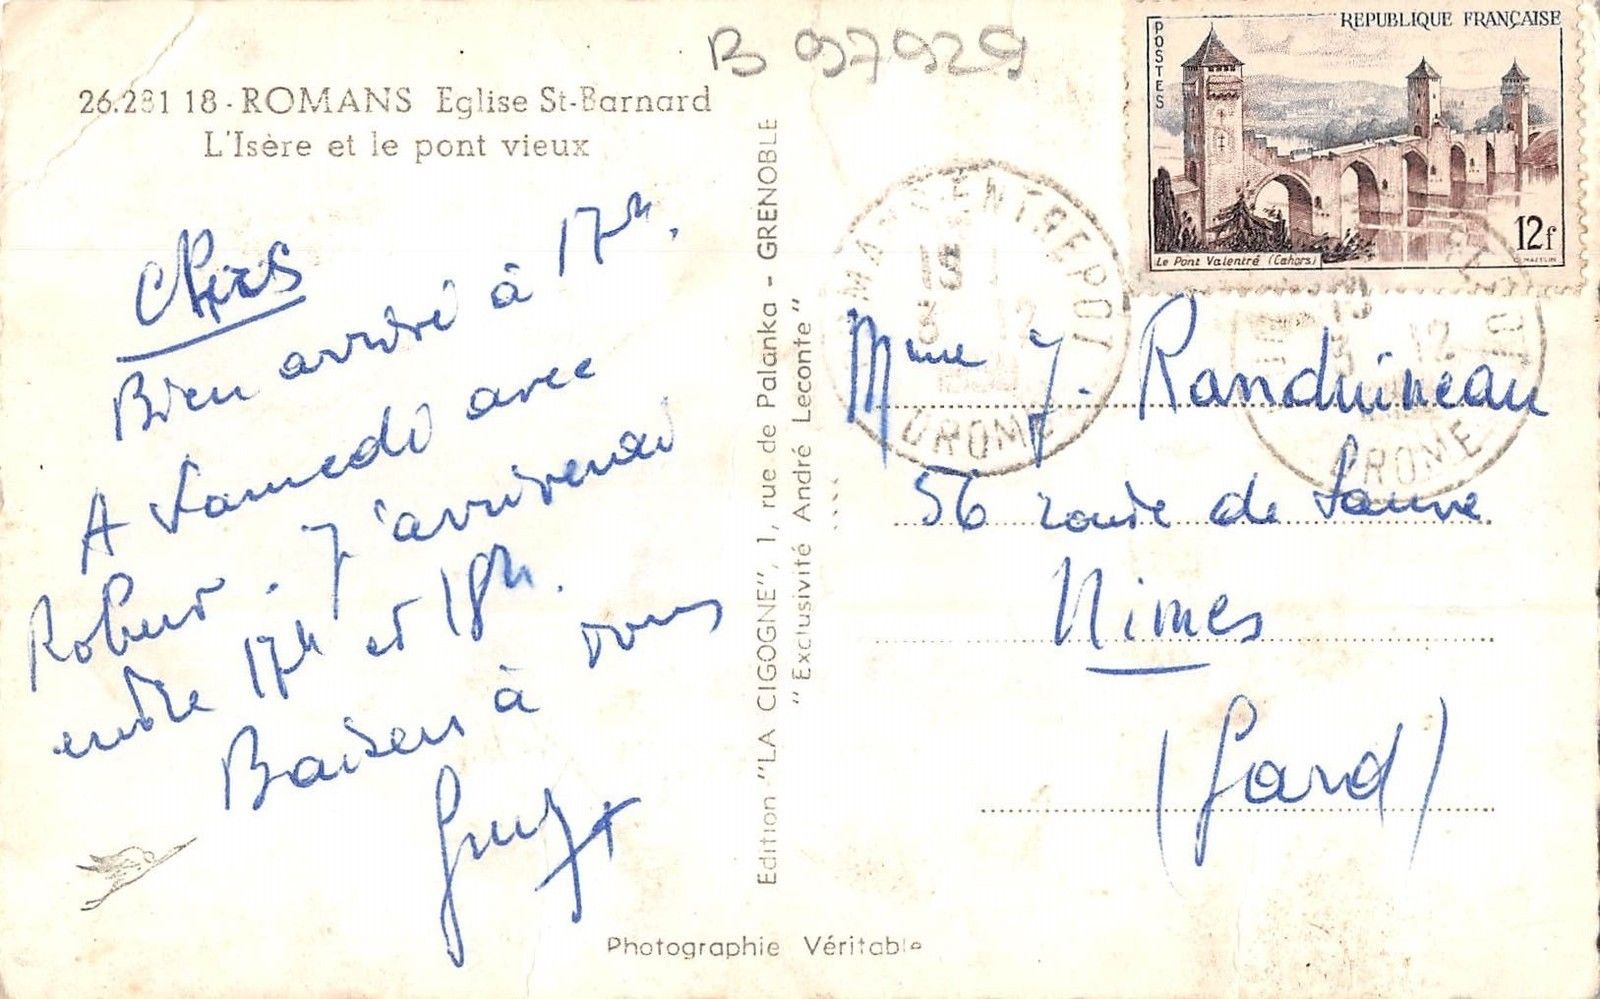 B 97929
26.281 18 - ROMANS Eglise St-Barnard
L'Isère et le pont vieux
Chers
Bien arrivé à 17h.
A samedi avec
Robert. J'arriverai
entre 17h et 18h.
Baisers à vous
Guy
Edition "LA CIGOGNE", 1, rue de Palanka - GRENOBLE
"Exclusivité André Leconte"
Photographie Véritable
REPUBLIQUE FRANÇAISE
POSTES
12f
Le Pont Valentré (Cahors)
ENTREPOT
3 12
DROME
3 12
DROME
Mme J. Randuineau
56 route de Sauve
Nimes
(Gard)